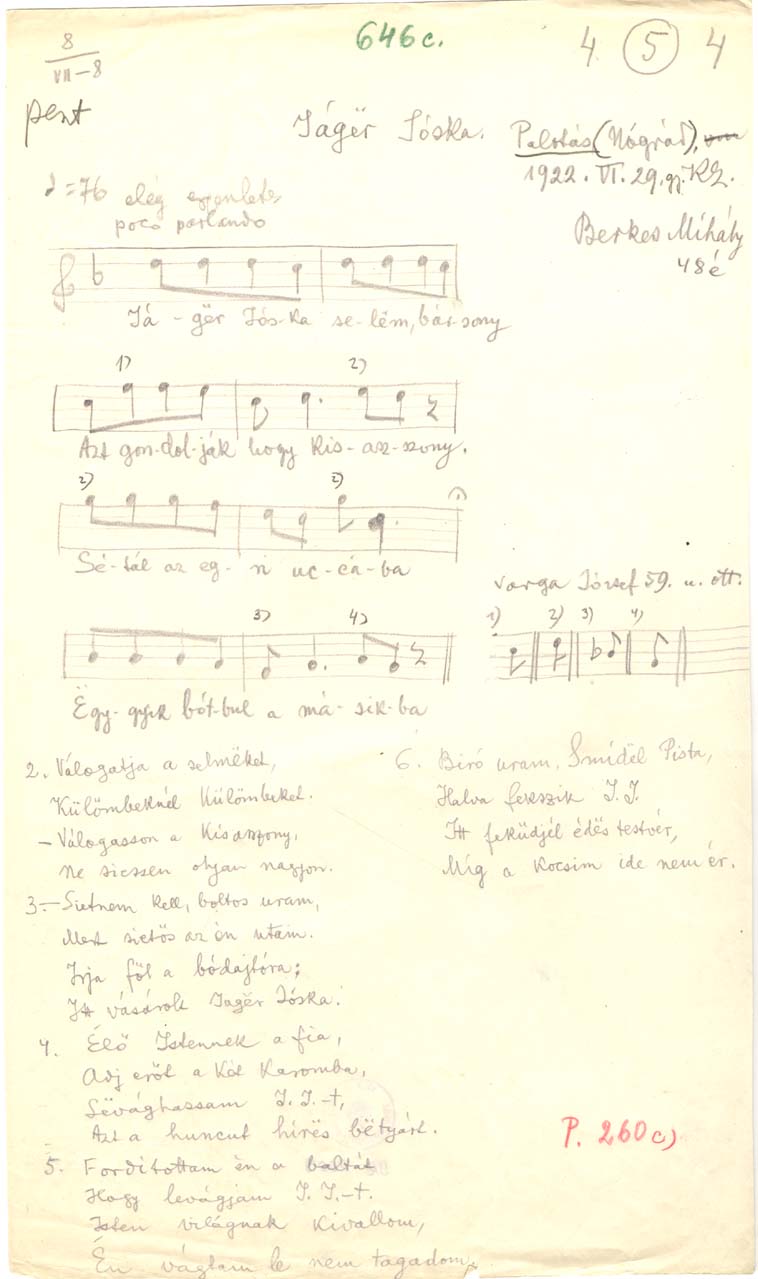 8
VII-8
646c.
4 5 4
pent
Jágër Jóska.
Palotás (Nógrád),
1922. VI. 29. gy. KZ.
Berkes Mihály
48é
♩=76 elég egyenletes
poco parlando
Já - gër Jós-ka se-lëm, bár-sony
1) 2)
Azt gon-dol-ják hogy kis-asz-szony.
2) 2)
Sé-tál az eg-ri uc-cá-ba
Varga József 59. u. ott.
3) 4)
1) 2) 3) 4)
Ëgy-gyik bót-bul a má-sik-ba
2. Válogatja a selmëket,
Külömbeknél külömbeket.
- Válogasson a kisaszony,
Ne siessen olyan nagyon.
3. - Sietnem kell, boltos uram,
Mert sietős az én utam.
Irja föl a bódajtóra;
Itt vásárolt Jagër Jóska.
4. Élő Istennek a fia,
Adj erőt a két karomba,
Lëvághassam J. J.-t,
Azt a huncut hírës bëtyárt.
5. Fordítottam én a baltát
Hogy levágjam J. J.-t.
Isten világnak kivallom,
Én vágtam le nem tagadom.
6. Biró uram, Smidël Pista,
Halva fekszik J. J.
Itt feküdjél édës testvér,
Míg a kocsim ide nem ér.
P. 260c)